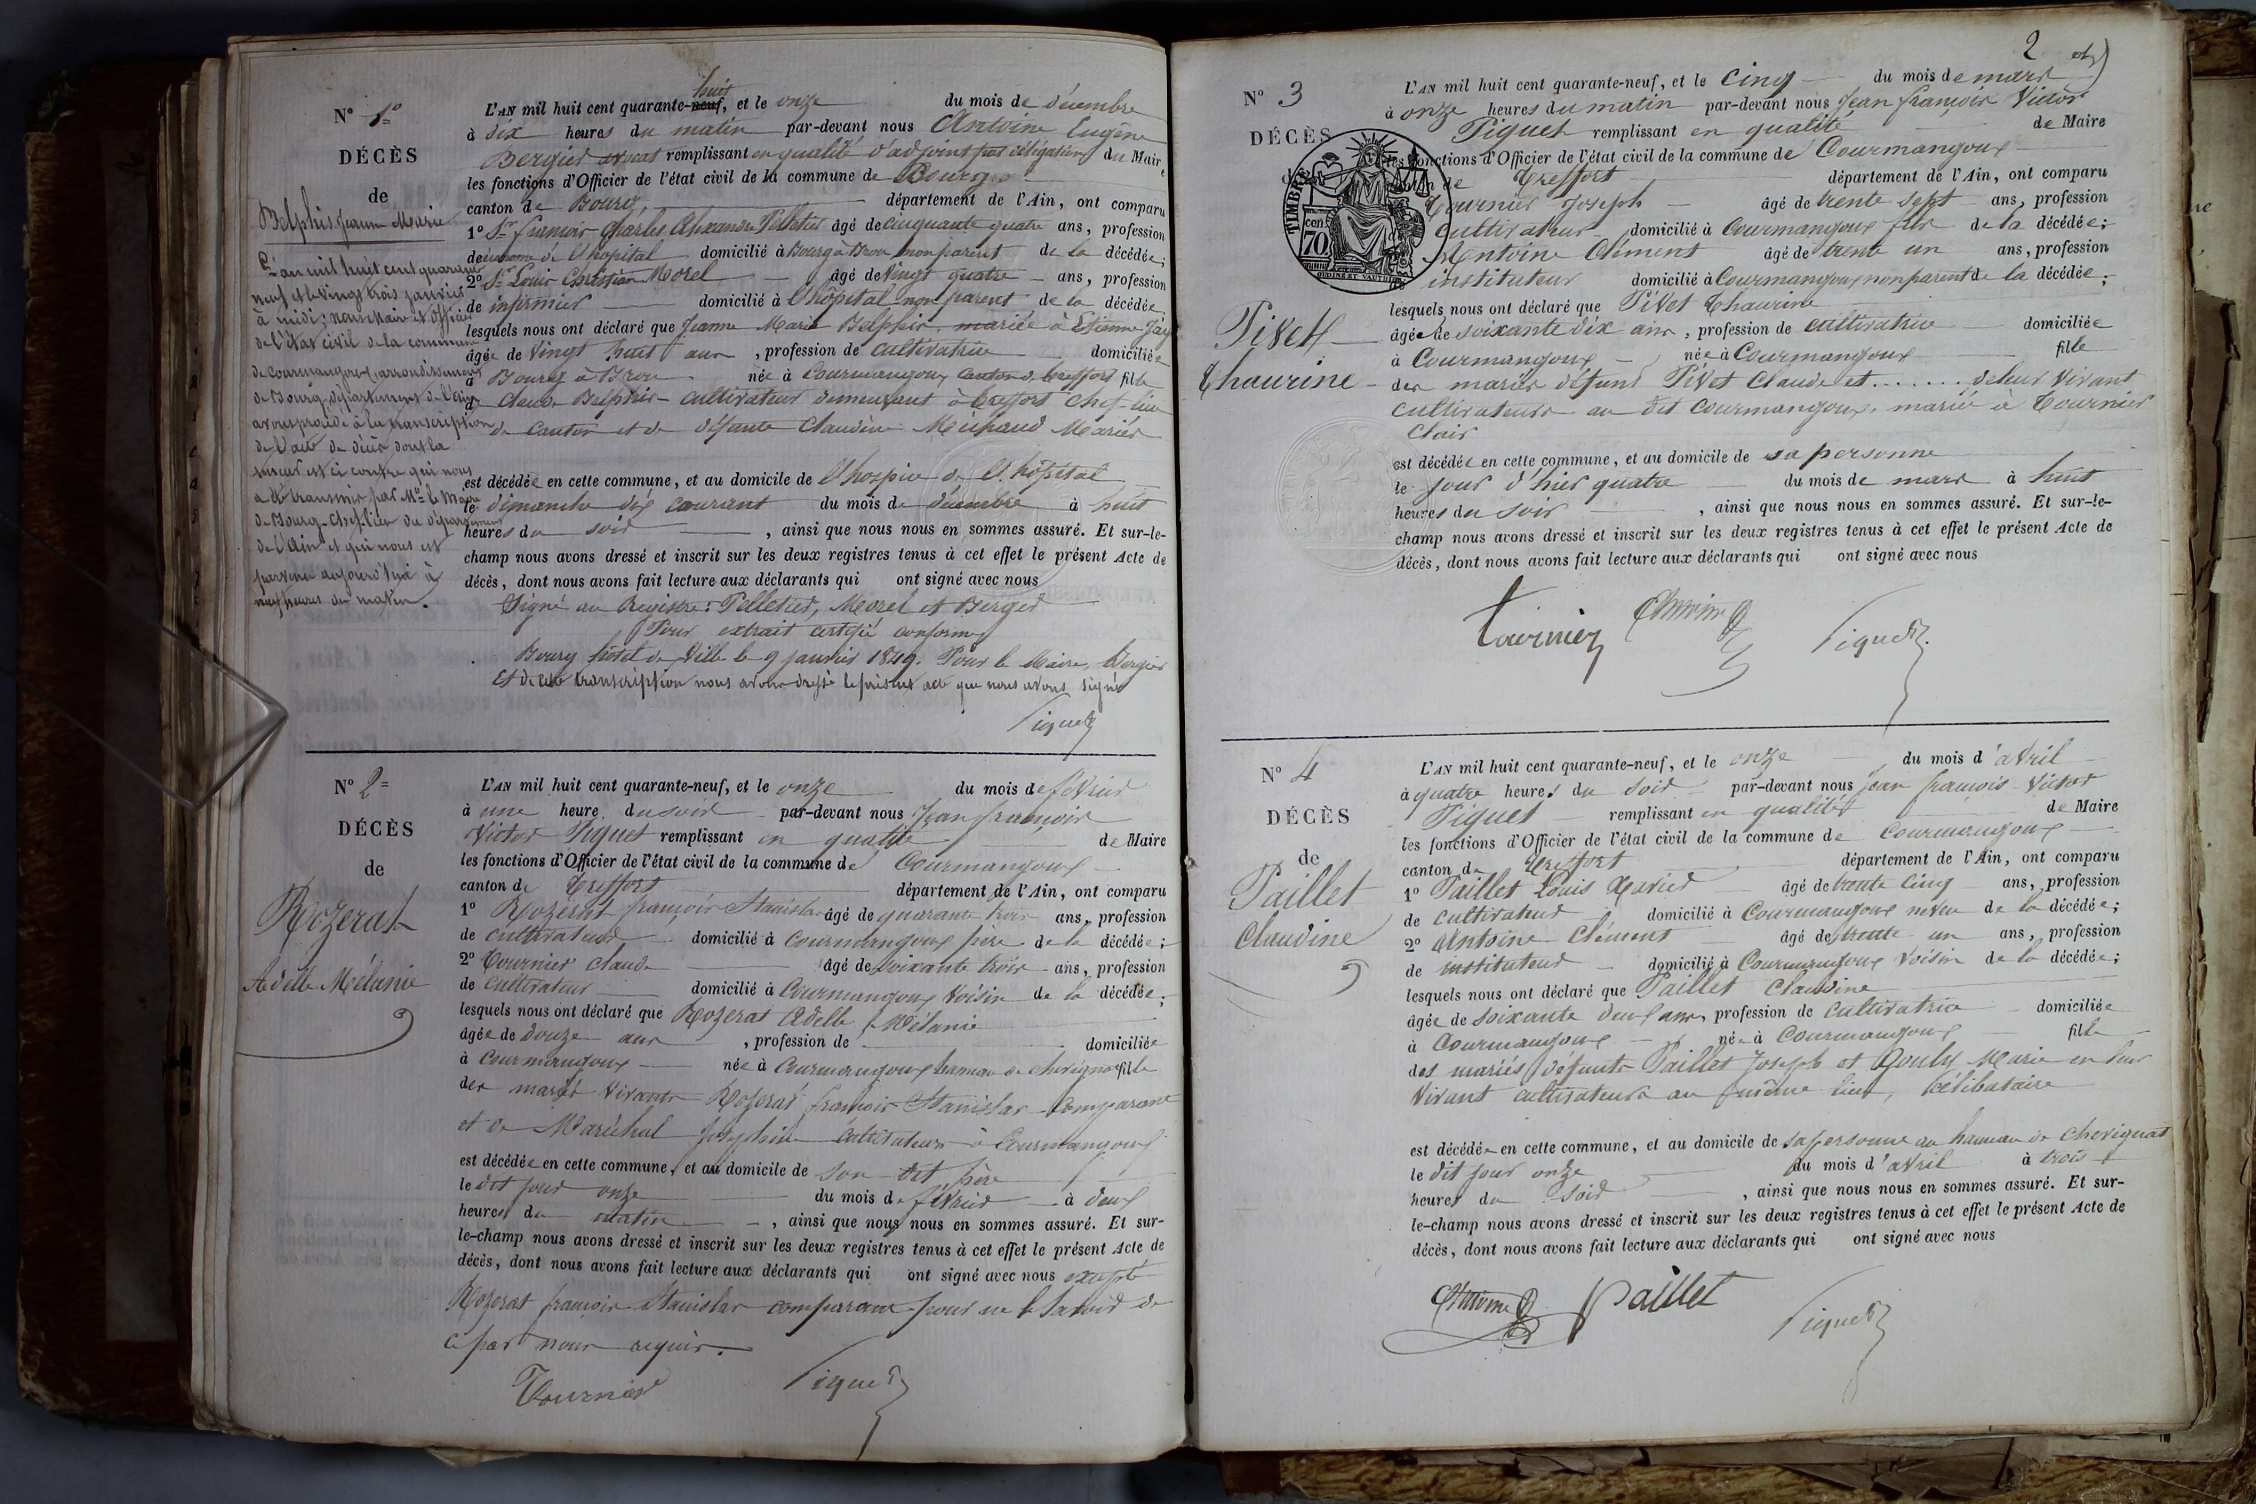 N° 1°
DÉCÈS
de
Belphis Jeanne Marie
L'an mil huit cent quarante
neuf et le vingt trois janvier
à midi; nous Maire et Officier
de l'état civil de la commune
de Courmangoux, arrondissement
de Bourg, département de l'Ain
avons procédé à la transcription
de l'acte de décès dont la
teneur est ci contre qui nous
a été transmis par Mr le Maire
de Bourg chef-lieu du département
de l'Ain et qui nous est
parvenu aujourd'hui à
neuf heures du matin.
huit
L'AN mil huit cent quarante-neuf, et le onze du mois de décembre
à dix heures du matin par-devant nous Antoine Eugène
Bergier avocat remplissant en qualité d'adjoint par délégation du Maire
les fonctions d'Officier de l'état civil de la commune de Bourg
canton de Bourg, département de l'Ain, ont comparu
1° Sr François Charles Alexandre Pelletier âgé de cinquante quatre ans, profession
d'économe de l'hôpital domicilié à Bourg à Brou non parent de la décédée;
2° Sr Louis Christian Morel âgé de vingt quatre ans, profession
de infirmier domicilié à l'hôpital non parent de la décédée,
lesquels nous ont déclaré que Jeanne Marie Belphis, mariée à Etienne Jay
âgée de vingt huit ans, profession de cultivatrice domiciliée
à Bourg à Brou née à Courmangoux canton de Treffort fille
de Claude Belphis cultivateur demeurant à Treffort chef-lieu
de canton et de défunte Claudine Michaud Mariés
est décédée en cette commune, et au domicile de l'hospice de l'hôpital
le dimanche dix courant du mois de décembre à huit
heures du soir, ainsi que nous nous en sommes assuré. Et sur-le-
champ nous avons dressé et inscrit sur les deux registres tenus à cet effet le présent Acte de
décès, dont nous avons fait lecture aux déclarants qui ont signé avec nous
Signé au Registre: Pelletier, Morel et Bergier
Pour extrait certifié conforme
Bourg hôtel de Ville le 9 janvier 1849. Pour le Maire, Bergier
Et de cette transcription nous avons dressé le présent acte que nous avons signé
Piquet
N° 2=
DÉCÈS
de
Rozerat
Adelle Mélanie
L'AN mil huit cent quarante-neuf, et le onze du mois de février
à une heure du soir par-devant nous Jean françois
Victor Piquet remplissant en qualité de Maire
les fonctions d'Officier de l'état civil de la commune de Courmangoux
canton de Treffort département de l'Ain, ont comparu
1° Rozerat françois Stanislas âgé de quarante trois ans, profession
de cultivateur domicilié à Courmangoux père de la décédée;
2° Tournier Claude âgé de soixante trois ans, profession
de cultivateur domicilié à Courmangoux voisin de la décédée,
lesquels nous ont déclaré que Rozerat Adelle Mélanie
âgée de douze ans, profession de domiciliée
à Courmangoux née à Courmangoux hameau de chevignat fille
des mariés vivants Rozerat françois Stanislas comparant
et de Maréchal Joséphine cultivateurs à Courmangoux
est décédée en cette commune, et au domicile de son dit père
le dit jour onze du mois de février à deux
heures du matin, ainsi que nous nous en sommes assuré. Et sur-
le-champ nous avons dressé et inscrit sur les deux registres tenus à cet effet le présent Acte de
décès, dont nous avons fait lecture aux déclarants qui ont signé avec nous excepté
Rozerat françois Stanislas comparant pour ne le savoir de
ce par nous requis.
Tournier Piquet
2
N° 3
DÉCÈS
TIMBRE
70
cen
Pivet
Thaurine
L'AN mil huit cent quarante-neuf, et le cinq du mois de mars
à onze heures du matin par-devant nous Jean françois Victor
Piquet remplissant en qualité de Maire
les fonctions d'Officier de l'état civil de la commune de Courmangoux
canton de Treffort département de l'Ain, ont comparu
Tournier Joseph âgé de trente sept ans, profession
cultivateur domicilié à Courmangoux fils de la décédée;
Antoine Clément âgé de trente un ans, profession
instituteur domicilié à Courmangoux non parent de la décédée;
lesquels nous ont déclaré que Pivet Thaurine
âgée de soixante dix ans, profession de cultivatrice domiciliée
à Courmangoux née à Courmangoux fille
des mariés défunt Pivet Claude et ....... de leur vivant
cultivateurs au dit Courmangoux, mariée à Tournier
Clair
est décédée en cette commune, et au domicile de sa personne
le jour d'hier quatre du mois de mars à huit
heures du soir, ainsi que nous nous en sommes assuré. Et sur-le-
champ nous avons dressé et inscrit sur les deux registres tenus à cet effet le présent Acte de
décès, dont nous avons fait lecture aux déclarants qui ont signé avec nous
Tournier Antoine Piquet
N° 4
DÉCÈS
de
Paillet
Claudine
L'AN mil huit cent quarante-neuf, et le onze du mois d'avril
à quatre heures du soir par-devant nous Jean françois Victor
Piquet remplissant en qualité de Maire
les fonctions d'Officier de l'état civil de la commune de Courmangoux
canton de Treffort département de l'Ain, ont comparu
1° Paillet Louis Xavier âgé de trente cinq ans, profession
de cultivateur domicilié à Courmangoux neveu de la décédée;
2° Antoine Clément âgé de trente un ans, profession
de instituteur domicilié à Courmangoux voisin de la décédée;
lesquels nous ont déclaré que Paillet Claudine
âgée de soixante deux ans, profession de cultivatrice domiciliée
à Courmangoux née à Courmangoux fille
des mariés défunts Paillet Joseph et Gouly Marie en leur
vivant cultivateurs au même lieu, célibataire
est décédée en cette commune, et au domicile de sa personne au hameau de chevignat
le dit jour onze du mois d'avril à trois
heures du soir, ainsi que nous nous en sommes assuré. Et sur-
le-champ nous avons dressé et inscrit sur les deux registres tenus à cet effet le présent Acte de
décès, dont nous avons fait lecture aux déclarants qui ont signé avec nous
Antoine Paillet Piquet